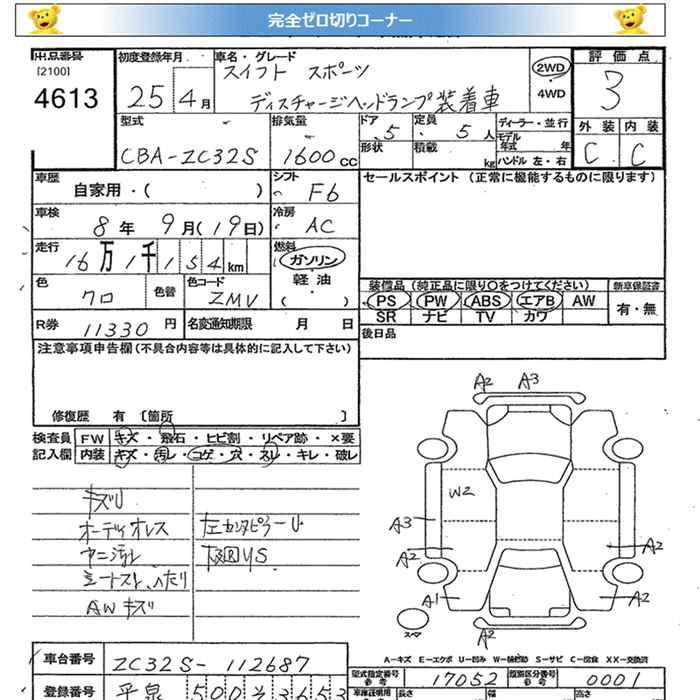 完全ゼロ切りコーナー
出品番号 初度登録年月 車名・グレード 評価点
[2100] スイフト スポーツ 2WD 3
4613 25 4月 ディスチャージヘッドランプ装着車 4WD
型式 排気量 ドア 定員 ディーラー・並行 外装 内装
CBA-ZC32S 1600cc 5 5人 モデル年式 年 C C
形状 積載 kg ハンドル 左・右
車歴 シフト セールスポイント (正常に機能するものに限ります)
自家用・( ) F6
車検 冷房
8年 9月(19日) AC
走行 燃料
16万1千154km ガソリン
軽油
( )
色 色替 色コード 装備品 (純正品に限り○をつけてください) 新車保証書
クロ ZMV PS PW ABS エアB AW 有・無
SR ナビ TV カワ
R券 11330円 名変通知期限 月 日 後日品
注意事項申告欄(不具合内容等は具体的に記入して下さい)
修復歴 有 [箇所 ]
検査員 FW キズ・飛石・ヒビ割・リペア跡・×要
記入欄 内装 キズ・汚レ・コゲ・穴・スレ・キレ・破レ
キズU
オーディオレス
ヤニ汚レ
シートスレ、ヘタリ
AWキズ
A2 A3
W2
A3
A2 A2
A1 A2
スペア
A2
A-キズ E-エクボ U-凹み W-補修跡 S-サビ C-腐食 XX-交換済
車台番号 ZC32S-112687 型式指定番号 参考 17052 類別区分番号 参考 0001
登録番号 長さ 幅 高さ